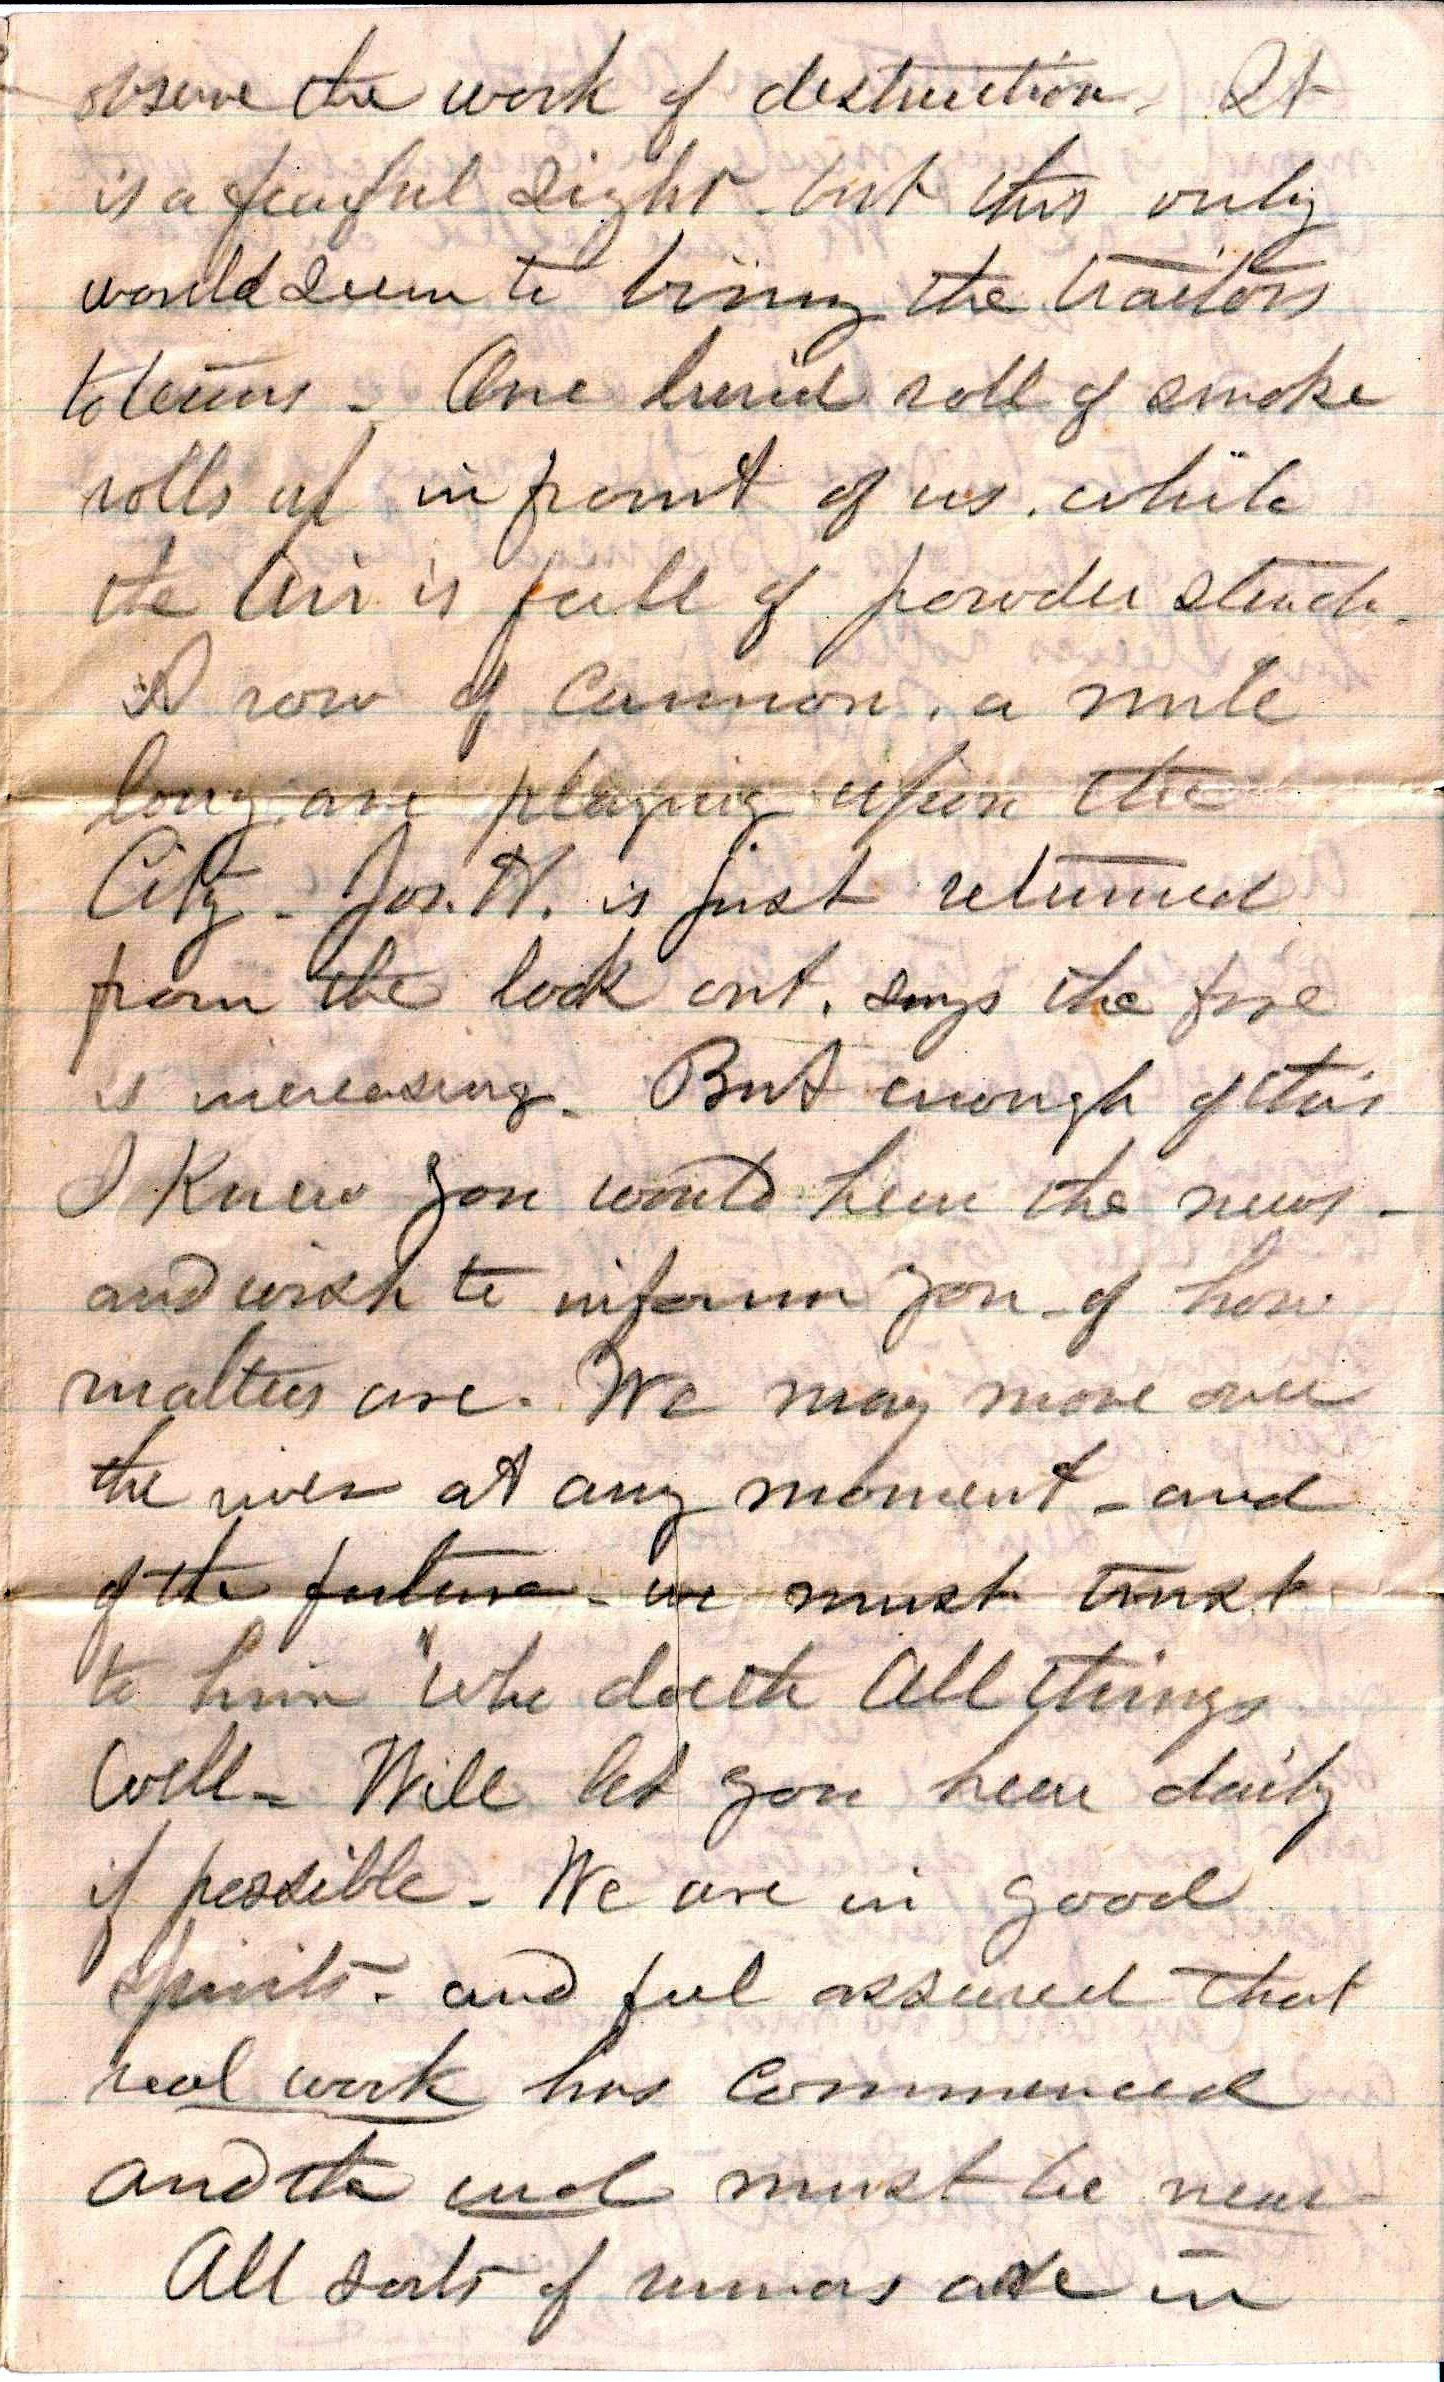 observe the work of destruction. It
is a fearful sight - but this only
would seem to bring the traitors
to terms - One lurid roll of smoke
rolls up in front of us. while
the Air is full of powder stench -
A row of Cannon. a mile
long. are playing upon the
City - Jos. H. is just returned
from the look out. says the fire
is increasing - But enough of this
I knew you would hear the news -
and wish to inform you of how
matters are. We may move over
the river at any moment - and
of the future - we must trust
to him "who doeth All things
Well - Will let you hear daily
if possible - We are in good
spirits - and feel assured that
real work has Commenced
and the end must be near
All sorts of rumors are in